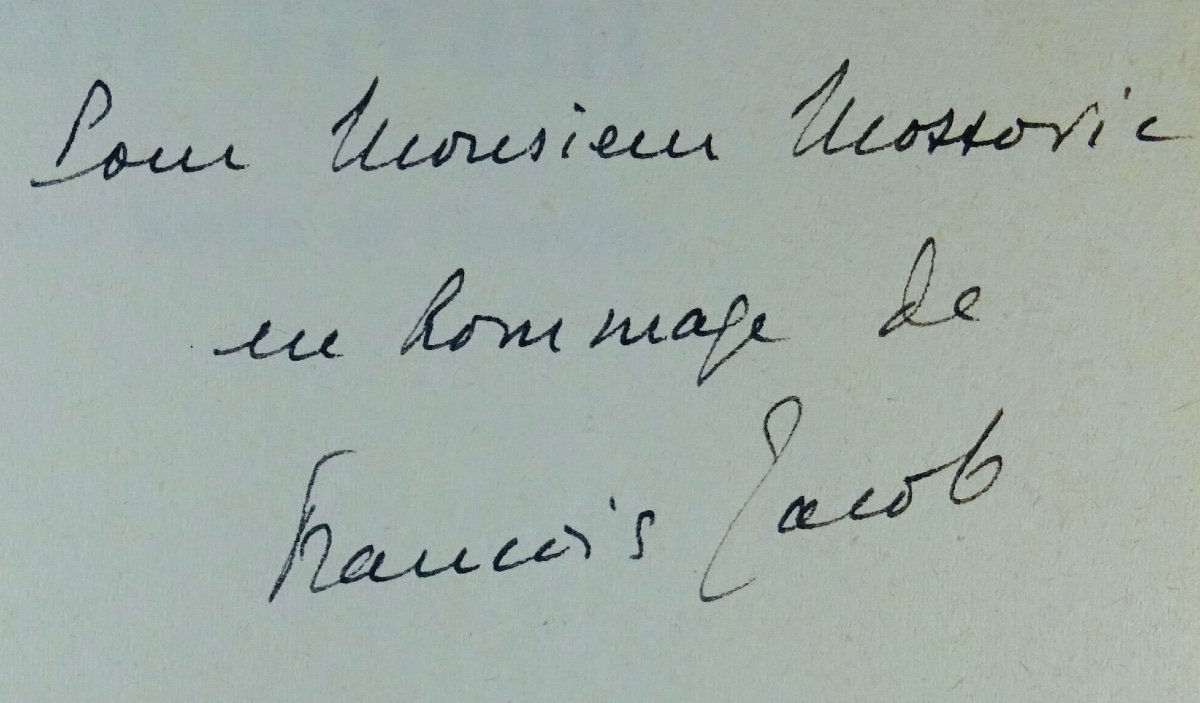 Pour Monsieur Mossovic
en hommage de
François Jacob